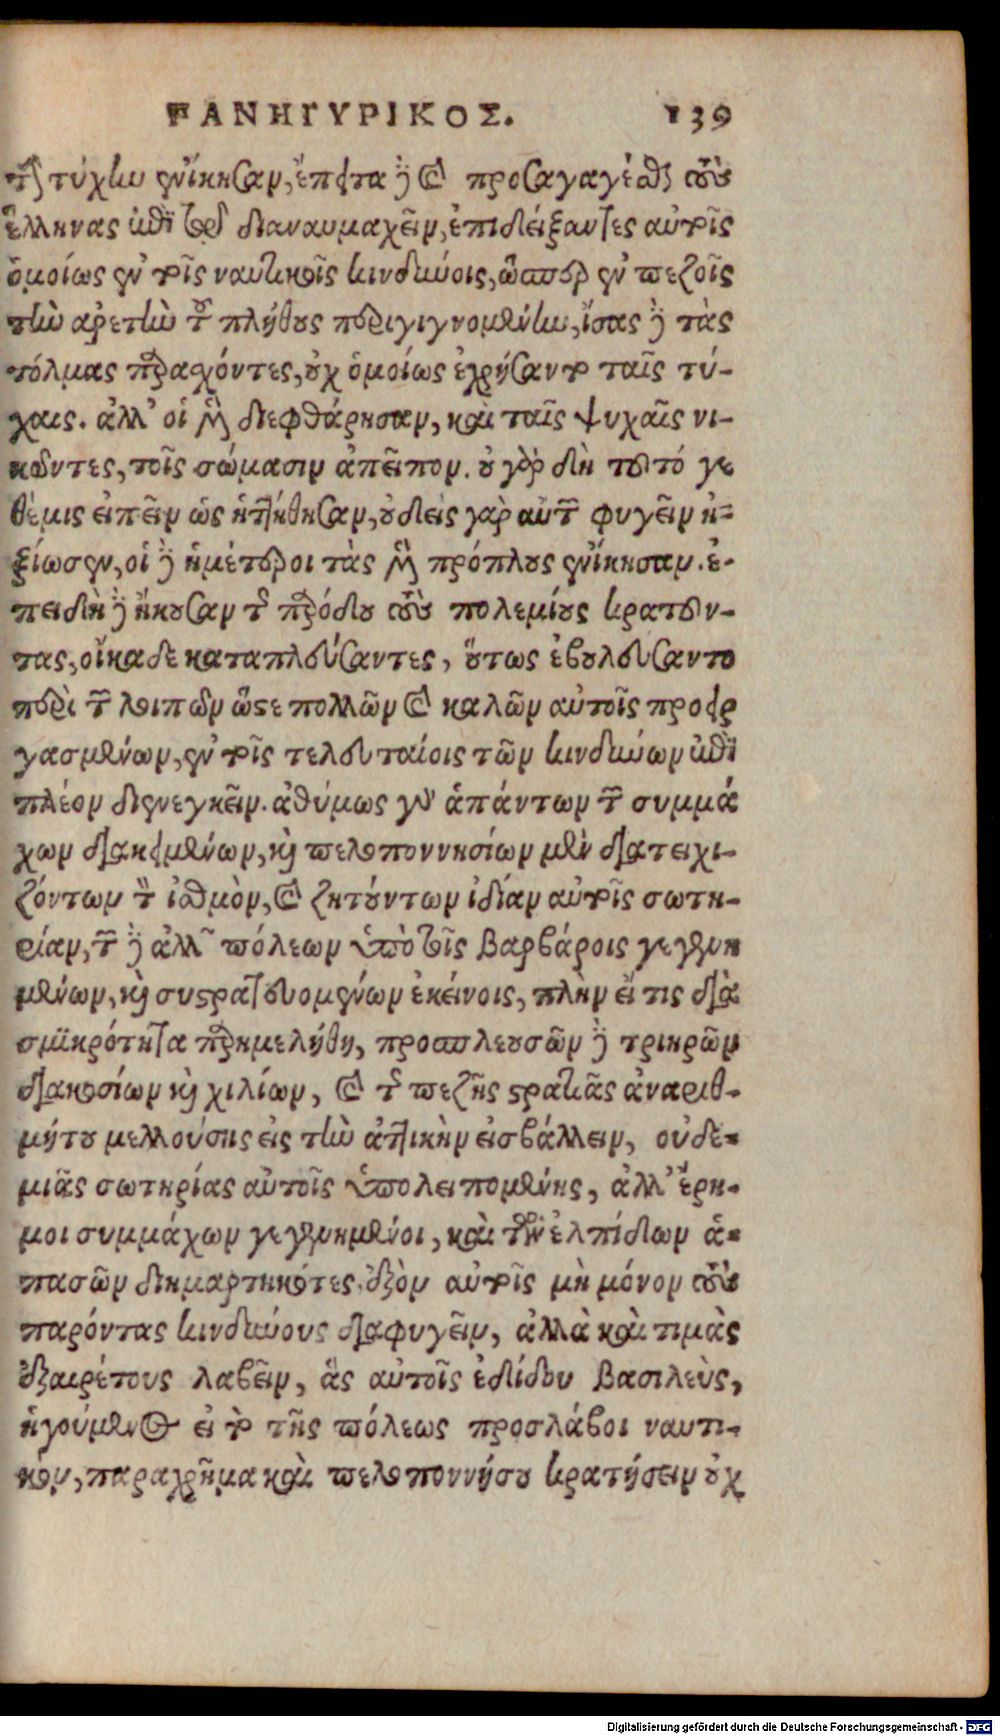 ΠΑΝΗΓΥΡΙΚΟΣ. 139
τὴν τύχην ἐνίκησαν, ἔπειτα δὲ καὶ προσαγαγέσθαι τοὺς
ἕλληνας ἐπὶ τὸ διαναυμαχεῖν, ἐπιδείξαντες αὐτοῖς
ὁμοίως ἐν τοῖς ναυτικοῖς κινδύνοις, ὥσπερ ἐν πεζοῖς
τὴν ἀρετὴν τοῦ πλήθους περιγιγνομένην, ἴσας δὲ τὰς
τόλμας παρασχόντες, οὐχ ὁμοίως ἐχρήσαντο ταῖς τύ-
χαις. ἀλλ' οἱ μὲν διεφθάρησαν, καὶ ταῖς ψυχαῖς νι-
κῶντες, τοῖς σώμασιν ἀπεῖπον. οὐ γὰρ δὴ τοῦτό γε
θέμις εἰπεῖν ὡς ἡττήθησαν, οὐδεὶς γὰρ αὐτῶν φυγεῖν ἠ-
ξίωσεν, οἱ δὲ ἡμέτεροι τὰς μὲν πρόπλους ἐνίκησαν. ἐ-
πειδὴ δὲ ἤκουσαν τῆς παρόδου τοὺς πολεμίους κρατοῦν-
τας, οἴκαδε καταπλεύσαντες, οὕτως ἐβουλεύσαντο
περὶ τῶν λοιπῶν ὥστε πολλῶν καὶ καλῶν αὐτοῖς προειρ
γασμένων, ἐν τοῖς τελευταίοις τῶν κινδύνων ἐπὶ
πλέον διενεγκεῖν. ἀθύμως γὰρ ἁπάντων τῶν συμμά
χων διακειμένων, καὶ πελοποννησίων μὲν διατειχι-
ζόντων τὸν ἰσθμὸν, καὶ ζητούντων ἰδίαν αὑτοῖς σωτη-
ρίαν, τῶν δὲ ἄλλων πόλεων ὑπὸ τοῖς βαρβάροις γεγενη
μένων, καὶ συστρατευομένων ἐκείνοις, πλὴν εἴ τις διὰ
σμικρότητα παρημελήθη, προσπλευσῶν δὲ τριηρῶν
διακοσίων καὶ χιλίων, καὶ τῆς πεζῆς στρατιᾶς ἀναριθ-
μήτου μελλούσης εἰς τὴν ἀττικὴν εἰσβάλλειν, οὐδε-
μιᾶς σωτηρίας αὐτοῖς ὑπολειπομένης, ἀλλ' ἔρη-
μοι συμμάχων γεγενημένοι, καὶ τῶν ἐλπίδων ἁ-
πασῶν διημαρτηκότες, ἐξὸν αὐτοῖς μὴ μόνον τοὺς
παρόντας κινδύνους διαφυγεῖν, ἀλλὰ καὶ τιμὰς
ἐξαιρέτους λαβεῖν, ἃς αὐτοῖς ἐδίδου βασιλεὺς,
ἡγούμενος εἰ τὸ τῆς πόλεως προσλάβοι ναυτι-
κὸν, παραχρῆμα καὶ πελοποννήσου κρατήσειν οὐχ
Digitalisierung gefördert durch die Deutsche Forschungsgemeinschaft - DFG